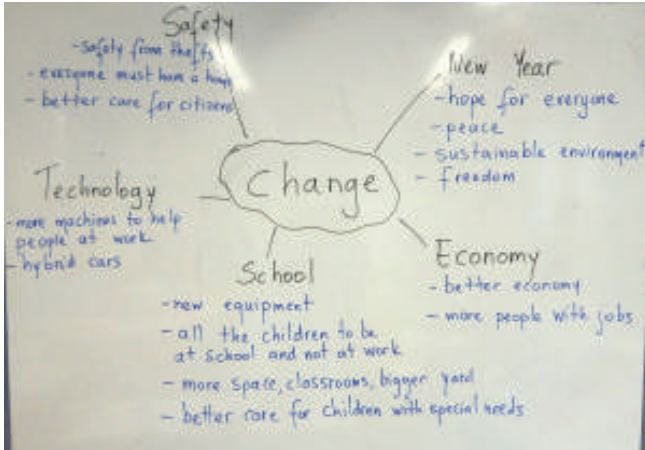 Safety
- safety from thefts
- everyone must have a home
- better care for citizens
New Year
- hope for everyone
- peace
- sustainable environment
- freedom
Technology
- more machines to help
people at work
- hybrid cars
Change
Economy
- better economy
- more people with jobs
School
- new equipment
- all the children to be
at school and not at work
- more space, classrooms, bigger yard
- better care for children with special needs